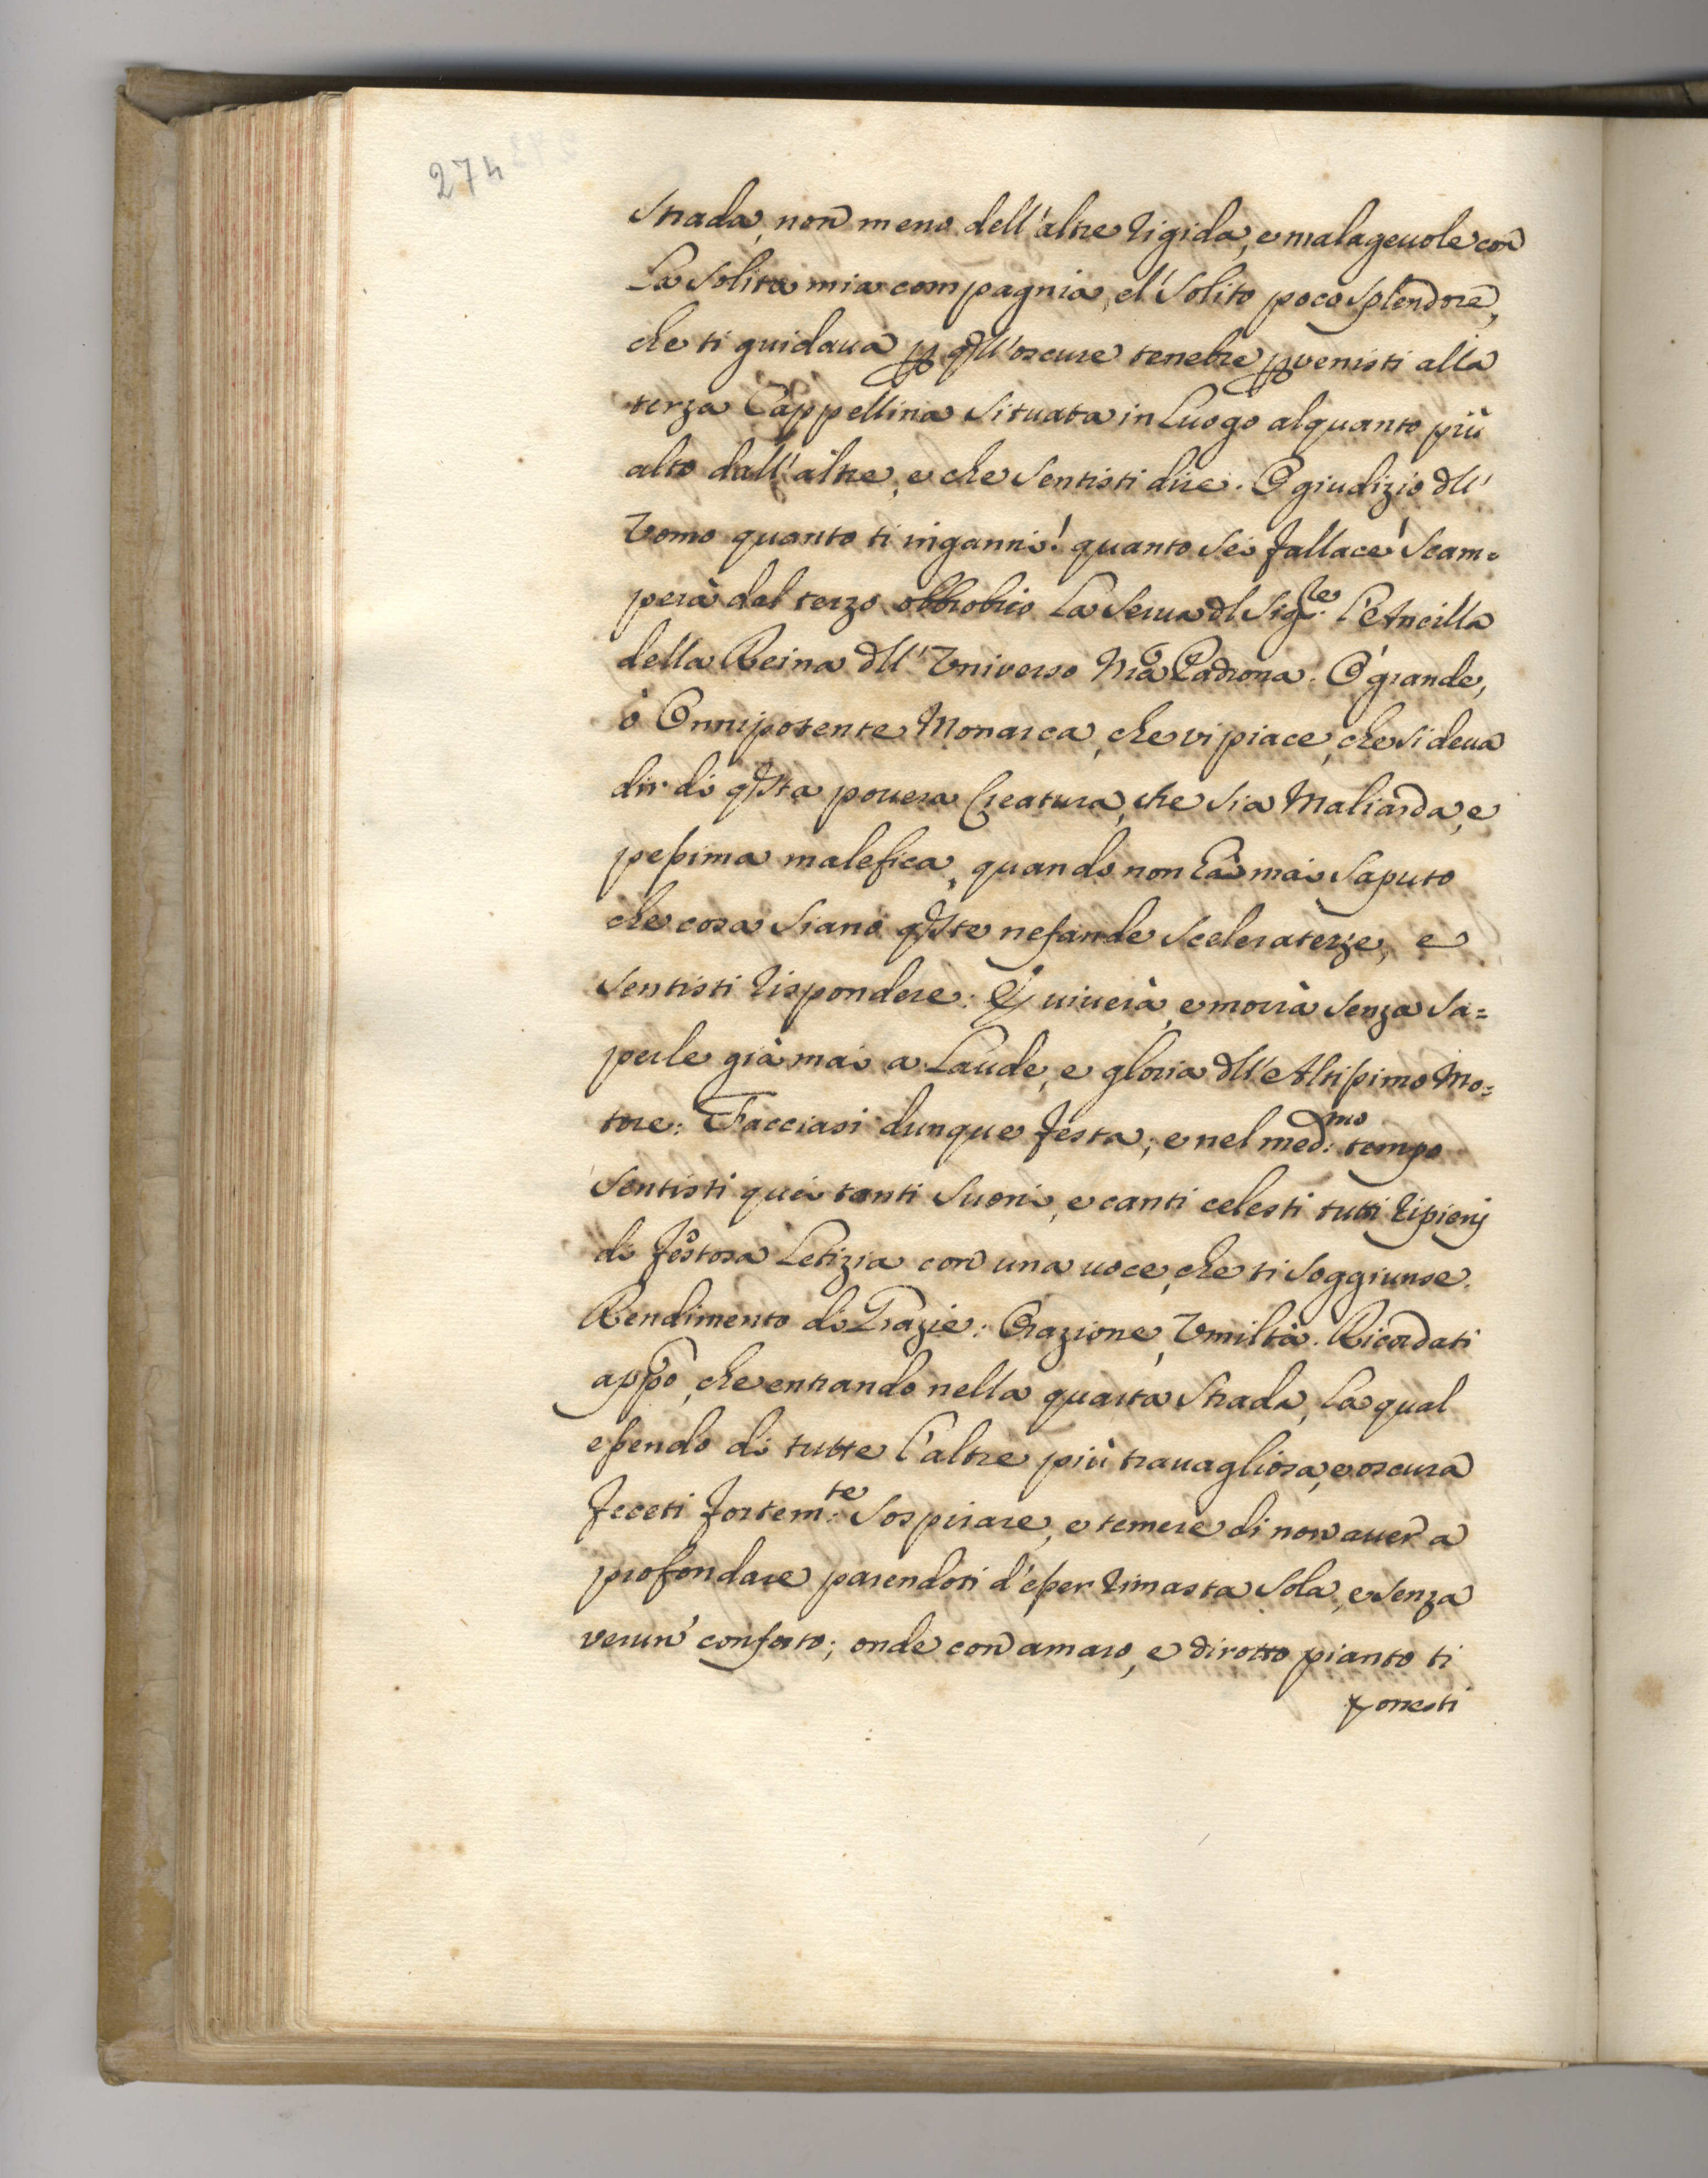 274
Strada, non meno dell'altre rigida, e malageuole con
La Solita mia compagnia, e'l Solito poco splendore,
che ti guidaua p qll'oscure tenebre pvenisti alla
terza Cappellina Situata in Luogo alquanto più
alto dall'altre, e che Sentisti dire. O giudizio dll'
Vomo quanto ti inganni! quanto Sei fallace! Scam-
perà dal terzo obbrobrio La Serua dl Sigre: l'Ancilla
della Reina dll'Vniverso Nra Padrona. O' grande,
ò Onnipotente Monarca, che vi piace, che Si deua
dir di qsta pouera Creatura, che Sia Maliarda, e
pessima malefica, quando non hà mai Saputo
che cosa Siano qste nefande Sceleratezze, e
Sentisti rispondere: E viuerà, e morrà Senza Sa=
perle già mai a Laude, e gloria dll'Altissimo Mo=
tore: Facciasi dunque festa; e nel med:mo tempo
Sentisti quei tanti Suoni, e canti celesti tutti ripienj
di festosa Letizia con una uoce, che ti Soggiunse.
Rendimento di Grazie: Orazione, Vmiltà. Ricordati
appo, che entrando nella quarta Strada, La qual
essendo di tutte l'altre più trauagliosa, e oscura
feceti fortem:te Sospirare, e temere di non auer a
profondare parendoti d'esser rimasta Sola, e Senza
verun' conforto; onde con amaro, e dirotto pianto ti
ponesti